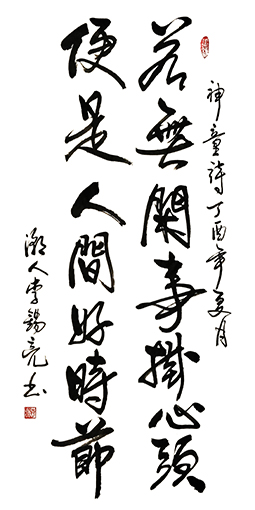 神童詩丁酉年夏月
若無閑事掛心頭
便是人間好時節
潮人李錫亮書